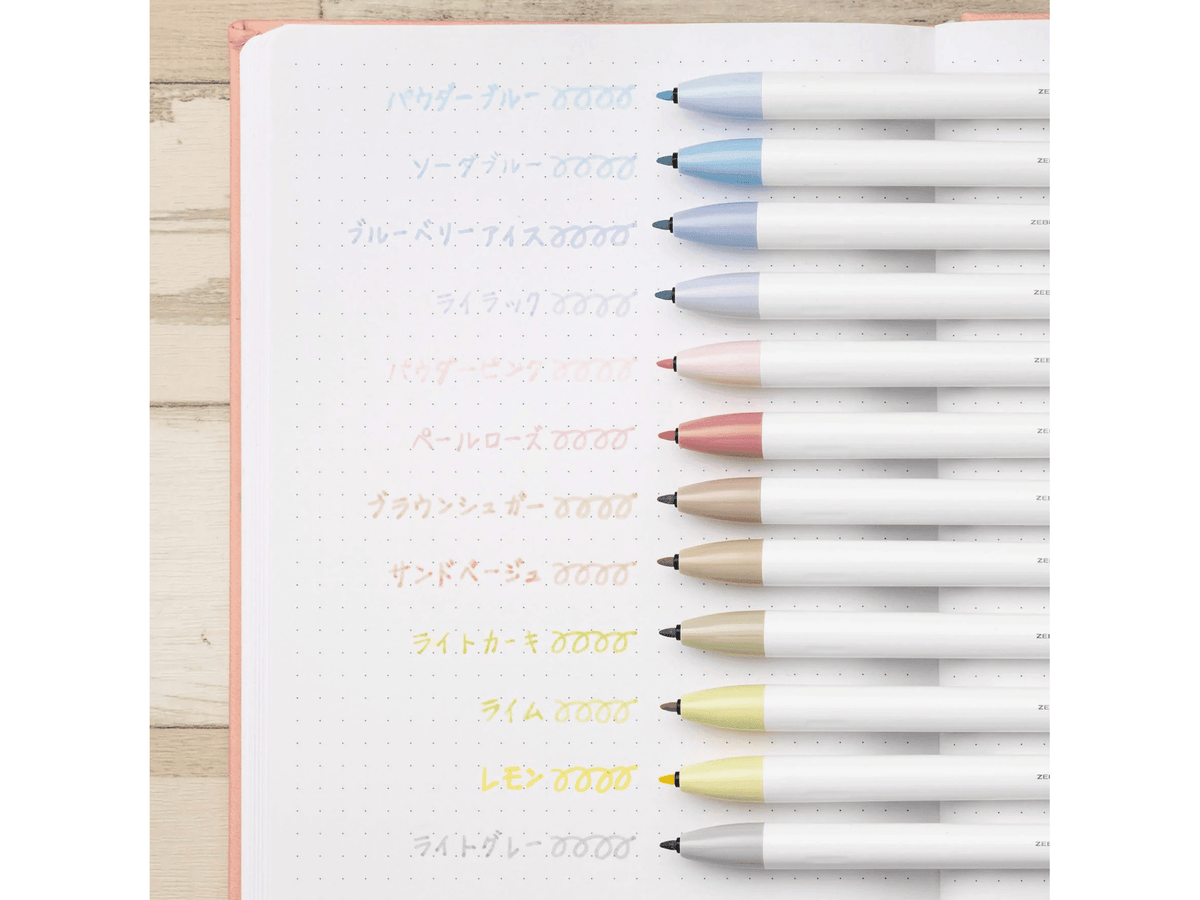 パウダーブルー ZE
ソーダブルー ZE
ブルーベリーアイス ZEB
ライラック ZE
パウダーピンク ZE
ペールローズ ZE
ブラウンシュガー ZE
サンドベージュ ZE
ライトカーキ ZE
ライム ZE
レモン ZE
ライトグレー ZE